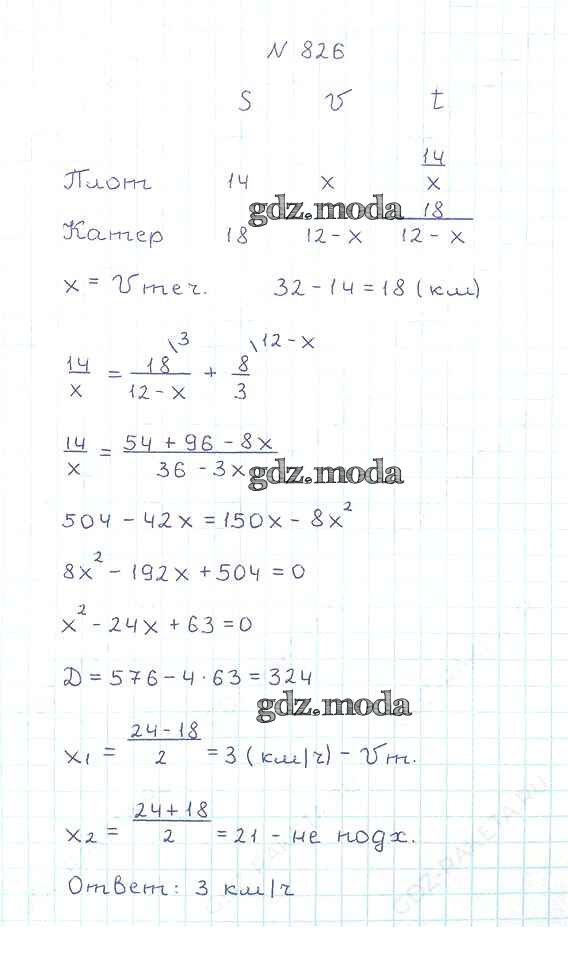 N 826
S V t
Плот 14 x 14/x
gdz.moda
Катер 18 12-x 18/(12-x)
x = Vтеч. 32-14=18 (км)
14/x = 18\3/(12-x) + 8\12-x/3
14/x = (54+96-8x)/(36-3x)
gdz.moda
504-42x=150x-8x²
8x²-192x+504=0
x²-24x+63=0
D=576-4·63=324
gdz.moda
x₁ = (24-18)/2 = 3 (км/ч) - Vт.
x₂ = (24+18)/2 = 21 - не подх.
GDZ-RAKETA.RU
Ответ: 3 км/ч